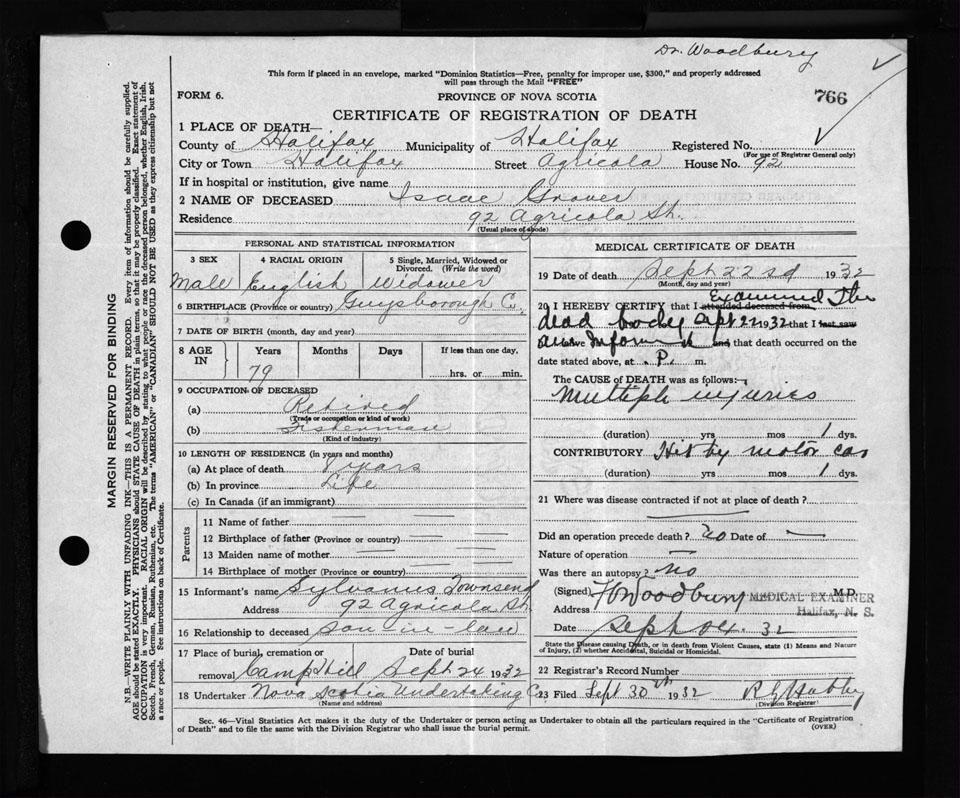 Dr. Woodbury
This form if placed in an envelope, marked "Dominion Statistics—Free, penalty for improper use, $300," and properly addressed
will pass through the Mail "FREE"
FORM 6.
PROVINCE OF NOVA SCOTIA
766
CERTIFICATE OF REGISTRATION OF DEATH
1 PLACE OF DEATH—
County of Halifax Municipality of Halifax Registered No.
(For use of Registrar General only)
City or Town Halifax Street Agricola House No. 92
If in hospital or institution, give name
2 NAME OF DECEASED Isaac Grover
Residence 92 Agricola St.
(Usual place of abode)
PERSONAL AND STATISTICAL INFORMATION
3 SEX 4 RACIAL ORIGIN 5 Single, Married, Widowed or Divorced. (Write the word)
Male English Widower
6 BIRTHPLACE (Province or country) Guysborough Co.
7 DATE OF BIRTH (month, day and year)
8 AGE IN Years Months Days If less than one day,
79 hrs. or min.
9 OCCUPATION OF DECEASED
(a) Retired
(Trade or occupation or kind of work)
(b) Fisherman
(Kind of industry)
10 LENGTH OF RESIDENCE (in years and months)
(a) At place of death 8 years
(b) In province Life
(c) In Canada (if an immigrant)
Parents
11 Name of father
12 Birthplace of father (Province or country)
13 Maiden name of mother
14 Birthplace of mother (Province or country)
15 Informant's name Sylvanus Townsend
Address 92 Agricola St.
16 Relationship to deceased son-in-law
17 Place of burial, cremation or removal Date of burial
Camp Hill Sept 24 1932
18 Undertaker Nova Scotia Undertaking Co.
(Name and address)
MEDICAL CERTIFICATE OF DEATH
19 Date of death Sept 22nd 1932
(Month, day and year)
20 I HEREBY CERTIFY that I attended deceased from Examined The
dead body Sept 22 1932 that I last saw
alive and that death occurred on the
date stated above, at P. m.
The CAUSE OF DEATH was as follows:—
Multiple injuries
(duration) yrs mos 1 dys.
CONTRIBUTORY Hit by motor car
(duration) yrs mos 1 dys.
21 Where was disease contracted if not at place of death?
Did an operation precede death? no Date of —
Nature of operation —
Was there an autopsy? no
(Signed) Woodbury M.D.
MEDICAL EXAMINER
Address Halifax, N. S.
Date Sept 32
State the Disease causing Death, or in death from Violent Causes, state (1) Means and Nature of Injury, (2) whether Accidental, Suicidal or Homicidal.
22 Registrar's Record Number
23 Filed Sept 30th 1932
(Division Registrar)
Sec. 46—Vital Statistics Act makes it the duty of the Undertaker or person acting as Undertaker to obtain all the particulars required in the "Certificate of Registration
of Death" and to file the same with the Division Registrar who shall issue the burial permit.
(OVER)
MARGIN RESERVED FOR BINDING
N.B.—WRITE PLAINLY WITH UNFADING INK—THIS IS A PERMANENT RECORD. Every item of information should be carefully supplied.
AGE should be stated EXACTLY. PHYSICIANS should STATE CAUSE OF DEATH in plain terms, so that it may be properly classified. Exact statement of
OCCUPATION is very important. RACIAL ORIGIN will be described by stating to what people or race the deceased person belonged, whether English, Irish,
Scotch, French, German, Russian, Ruthenian, etc. The terms "AMERICAN" or "CANADIAN" SHOULD NOT BE USED as they express citizenship but not
a race or people. See instructions on back of Certificate.